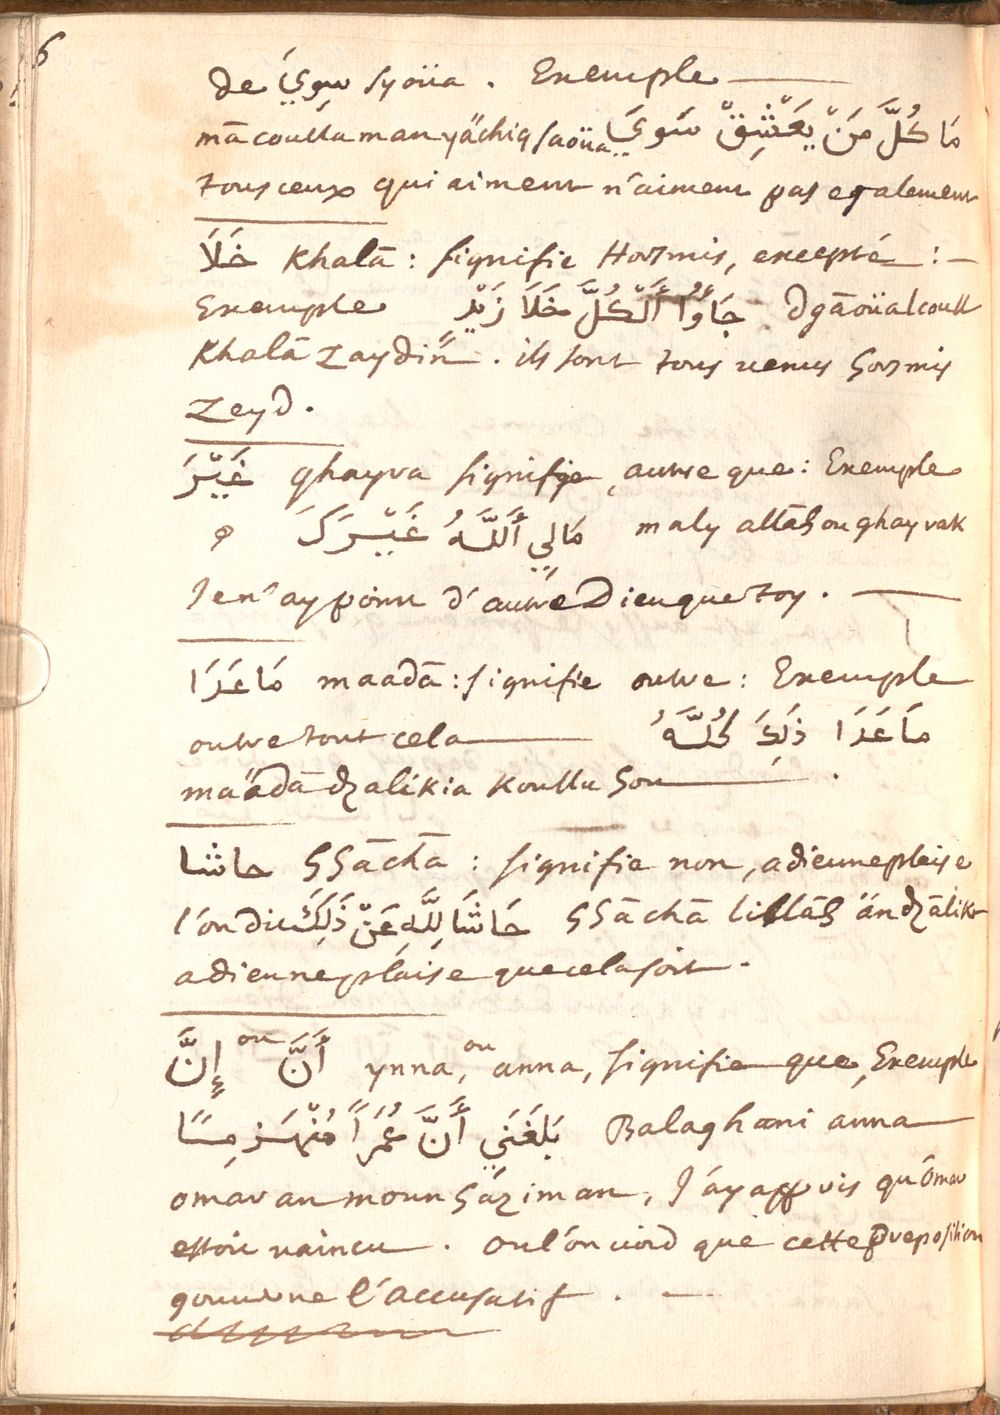 6
de سِوَيَ syoüa . Exemple
mā coullu man yäschiq saoüa مَا كُلَّ مَنْ يَعْشِقْ سَوَيَ
tous ceux qui aiment n'aiment pas egalement
خَلَاَ Khalā : signifie Hormis, excepté :
Exemple جَاؤُا أَلْكُلَّ خَلَاَ زَيْدٍ . dgāoüalcoull
Khalā Zaydin . ils sont tous venus hormis
Zeyd .
غَيْرَ ghayra signifie , autre que : Exemple
مَالِي أَللَّهُ غَيْرَكَ maly allāhou ghayrak
Je n'ay point d'autre Dieu que toy .
مَاعَدَا maadā : signifie outre : Exemple
outre tout cela مَاعَدَا ذَلِكَ كُلَّهُ
maädā dzalikia koullu hou .
حاشا hhāchā : signifie non, a dieu ne plaise
l'on dit حَاشَا لِلَّهِ عَنْ ذَلِكَ hhāchā lillāh än dzālika
a dieu ne plaise que cela soit .
إِنَّ ou أَنَّ ynna, ou anna, signifie que, Exemple
بَلَغَنِي أَنَّ عُمَرَاً مُنْهَزِمًا Balaghani anna
omar an mounháziman, J'áy appris qu'Omar
estoit vaincu . ou l'on void que cette preposition
gouverne l'accusatif .